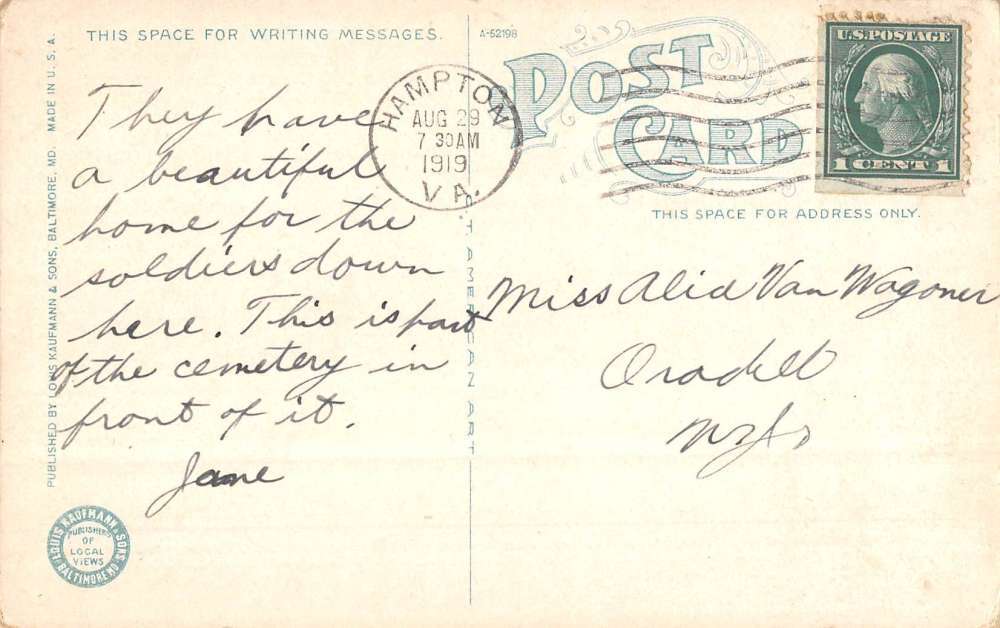 THIS SPACE FOR WRITING MESSAGES.
A-52198
POST
CARD
U.S. POSTAGE
1 CENT 1
HAMPTON
AUG 29
7 30 AM
1919
VA.
THIS SPACE FOR ADDRESS ONLY.
They have
a beautiful
home for the
soldiers down
here. This is part
of the cemetery in
front of it.
Jane
Miss Alid Van Wagoner
Oradell
N.J.
PUBLISHED BY LOUIS KAUFMANN & SONS, BALTIMORE, MD. MADE IN U. S. A.
AMERICAN ART
LOUIS KAUFMANN & SONS
PUBLISHERS
OF
LOCAL
VIEWS
BALTIMORE MD